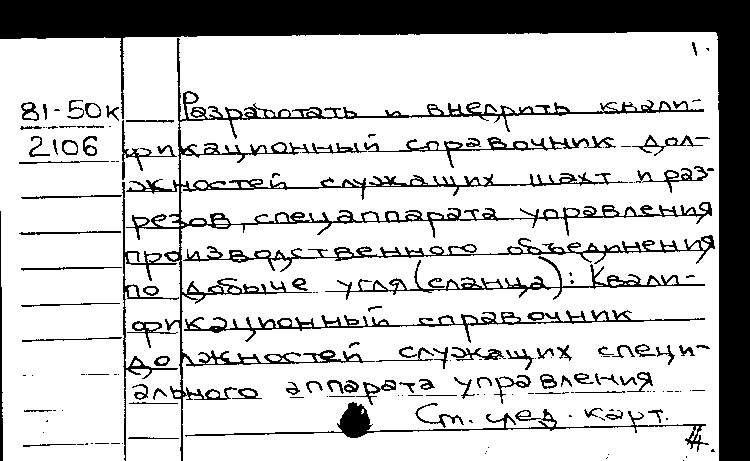 1.
81-50к Разработать и внедрить квали-
2106 фикационный справочник дол-
жностей служащих шахт и раз-
резов, спецаппарата управления
производственного объединения
по добыче угля (сланца): Квали-
фикационный справочник
должностей служащих специ-
ального аппарата управления
Ст. след. карт.